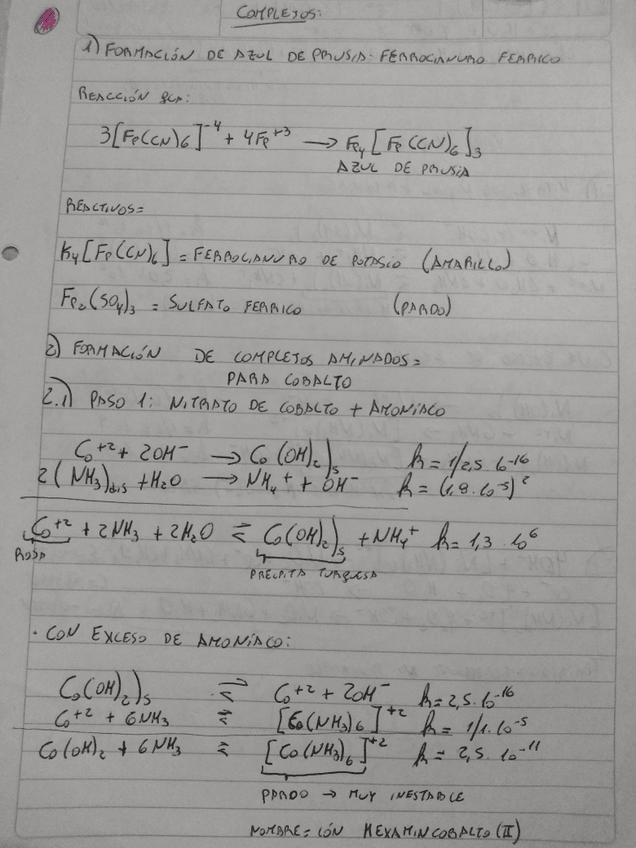 COMPLEJOS:
1) FORMACIÓN DE AZUL DE PRUSIA: FERROCIANURO FERRICO
REACCIÓN GRAL:
3[Fe(CN)6]^-4 + 4Fe^+3 → Fe4[Fe(CN)6]3
AZUL DE PRUSIA
REACTIVOS=
K4[Fe(CN)6] = FERROCIANURO DE POTASIO (AMARILLO)
Fe2(SO4)3 = SULFATO FERRICO (PARDO)
2) FORMACIÓN DE COMPLEJOS AMINADOS=
PARA COBALTO
2.1) PASO 1: NITRATO DE COBALTO + AMONÍACO
Co^+2 + 2OH^- → Co(OH)2)s k = 1/2,5·10^-16
2(NH3)dis + H2O → NH4^+ + OH^- k = (1,8·10^-5)^2
Co^+2 + 2NH3 + 2H2O ⇌ Co(OH)2)s + NH4^+ k = 1,3·10^6
ROSA
PRECIPITA TURQUESA
· CON EXCESO DE AMONÍACO:
Co(OH)2)s ⇌ Co^+2 + 2OH^- k = 2,5·10^-16
Co^+2 + 6NH3 ⇌ [Co(NH3)6]^+2 k = 1/1·10^-5
Co(OH)2 + 6NH3 ⇌ [Co(NH3)6]^+2 k = 2,5·10^-11
PARDO → MUY INESTABLE
NOMBRE= IÓN HEXAMINCOBALTO (II)